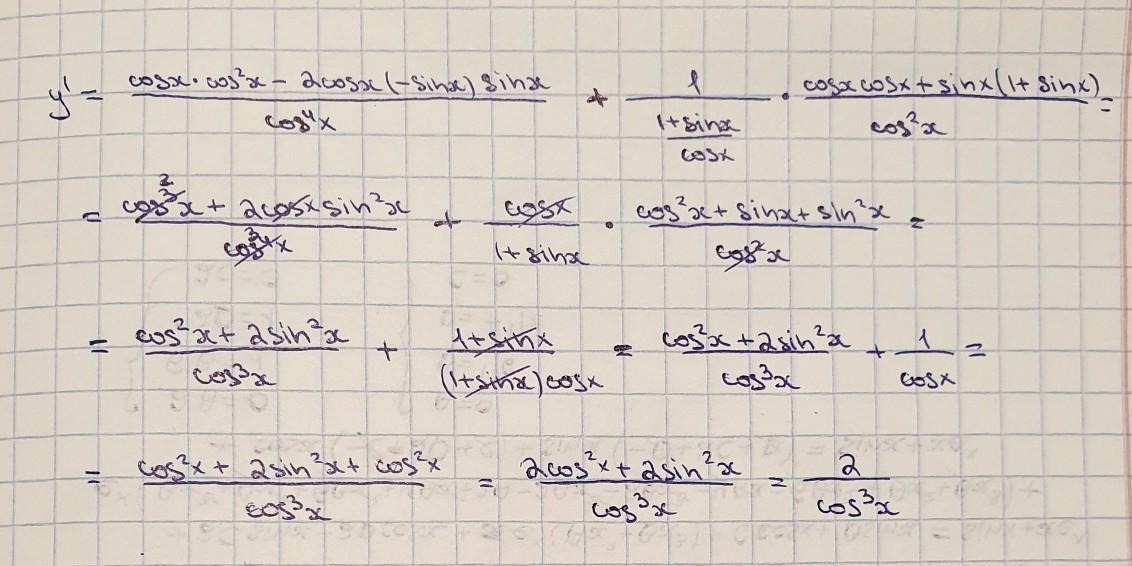 y' = (cosx · cos²x − 2cosx(−sinx)sinx)/(cos⁴x) + 1/((1+sinx)/(cosx)) · (cosx cosx + sinx(1+sinx))/(cos²x) =
= (cos³x + 2cosx sin²x)/(cos⁴x) + (cosx)/(1+sinx) · (cos²x + sinx + sin²x)/(cos²x) =
= (cos²x + 2sin²x)/(cos³x) + (1+sinx)/((1+sinx)cosx) = (cos²x + 2sin²x)/(cos³x) + 1/(cosx) =
= (cos²x + 2sin²x + cos²x)/(cos³x) = (2cos²x + 2sin²x)/(cos³x) = 2/(cos³x)